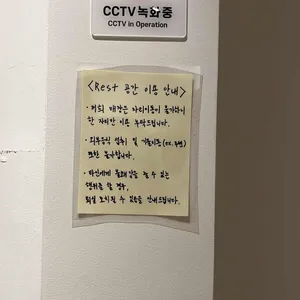 CCTV 녹화중
CCTV in Operation
<Rest 공간 이용 안내>
· 저희 매장은 자리이동이 불가하니
한 자리만 이용 부탁드립니다.
· 외부음식 섭취 및
또한 불가합니다.
· 타인에게 불쾌감을 줄 수 있는
행위를 할 경우,
퇴실 조치될 수 있음을 안내드립니다.